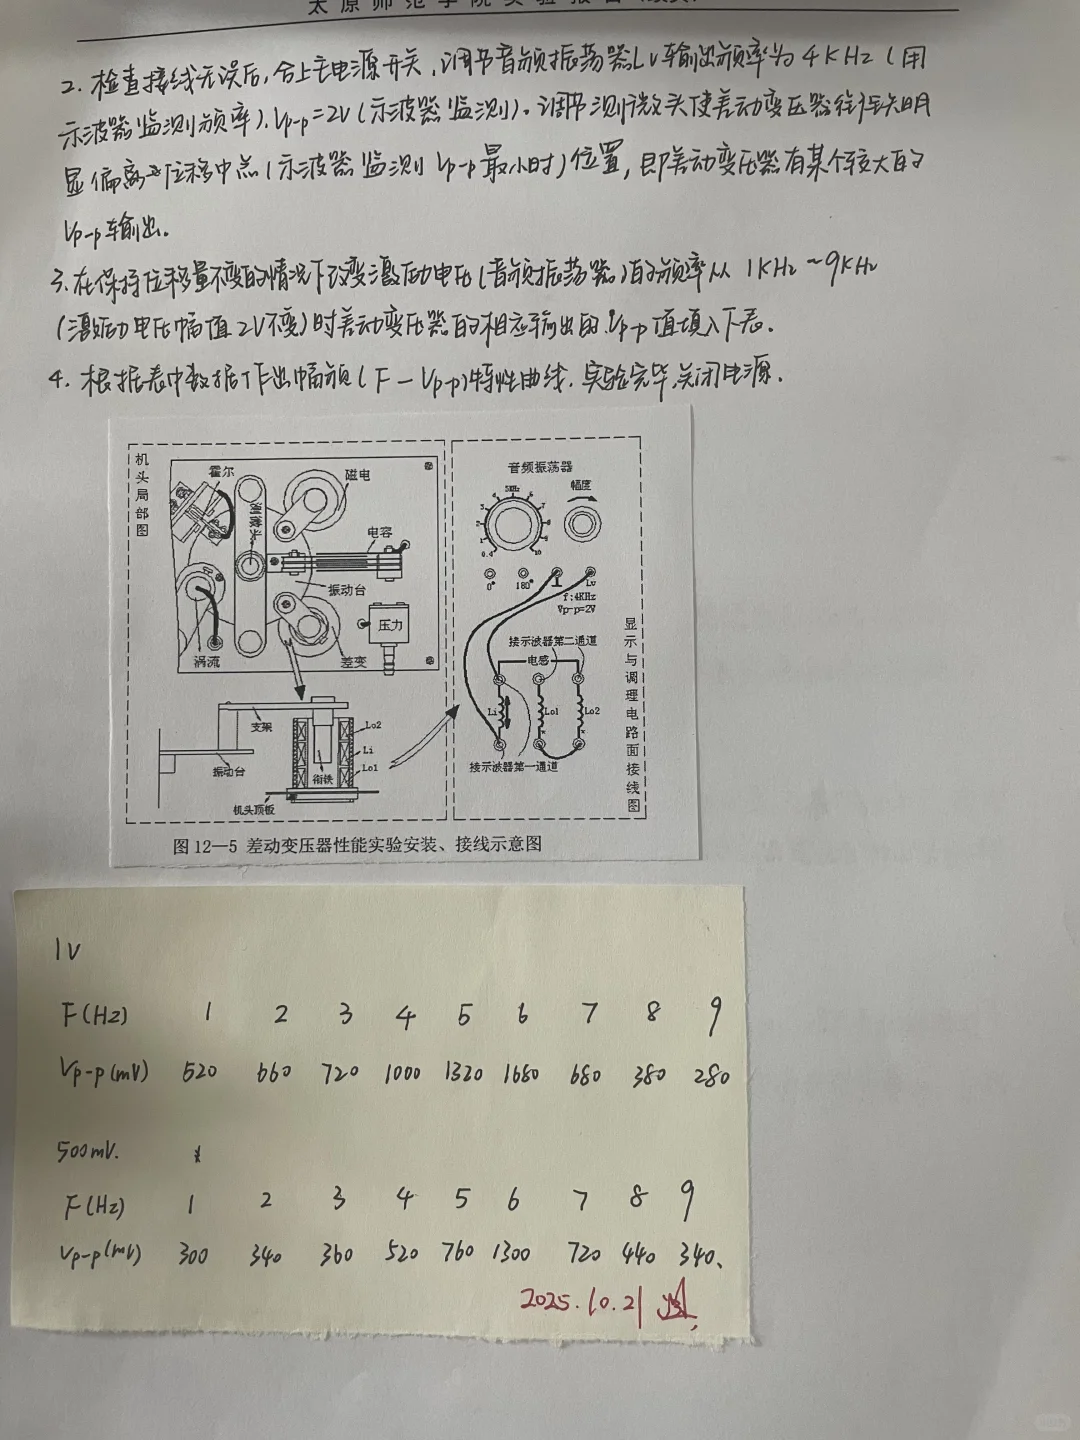 太原师范学院实验报告
2. 检查接线无误后,合上主电源开关,调节音频振荡器Lv输出频率为4KHz(用
示波器监测频率).Vp-p=2V(示波器监测)。调节测微头使差动变压器衔铁明
显偏离位移中点(示波器监测Vp-p最小时)位置,即差动变压器有某个较大的
Vp-p输出.
3.在保持位移量不变的情况下改变激励电压(音频振荡器)的频率从1KHz~9KHz
(激励电压幅值2V不变)时差动变压器的相应输出的Vp-p值填入下表.
4. 根据表中数据作出幅频(F-Vp-p)特性曲线.实验完毕,关闭电源.
机头局部图
霍尔
磁电
测微头
电容
振动台
压力
涡流
差变
支架
Lo2
Li
振动台
衔铁
Lo1
机头顶板
音频振荡器
幅度
5KHz
0.4
10
0°
180°
⊥
Lv
f:4KHz
Vp-p=2V
接示波器第二通道
电感
Li
Lo1
Lo2
接示波器第一通道
显示与调理电路面接线图
图12—5 差动变压器性能实验安装、接线示意图
1V
F(Hz) 1 2 3 4 5 6 7 8 9
Vp-p(mV) 520 660 720 1000 1320 1680 680 380 280
500mV.
F(Hz) 1 2 3 4 5 6 7 8 9
Vp-p(mV) 300 340 360 520 760 1300 720 440 340、
2025.10.21